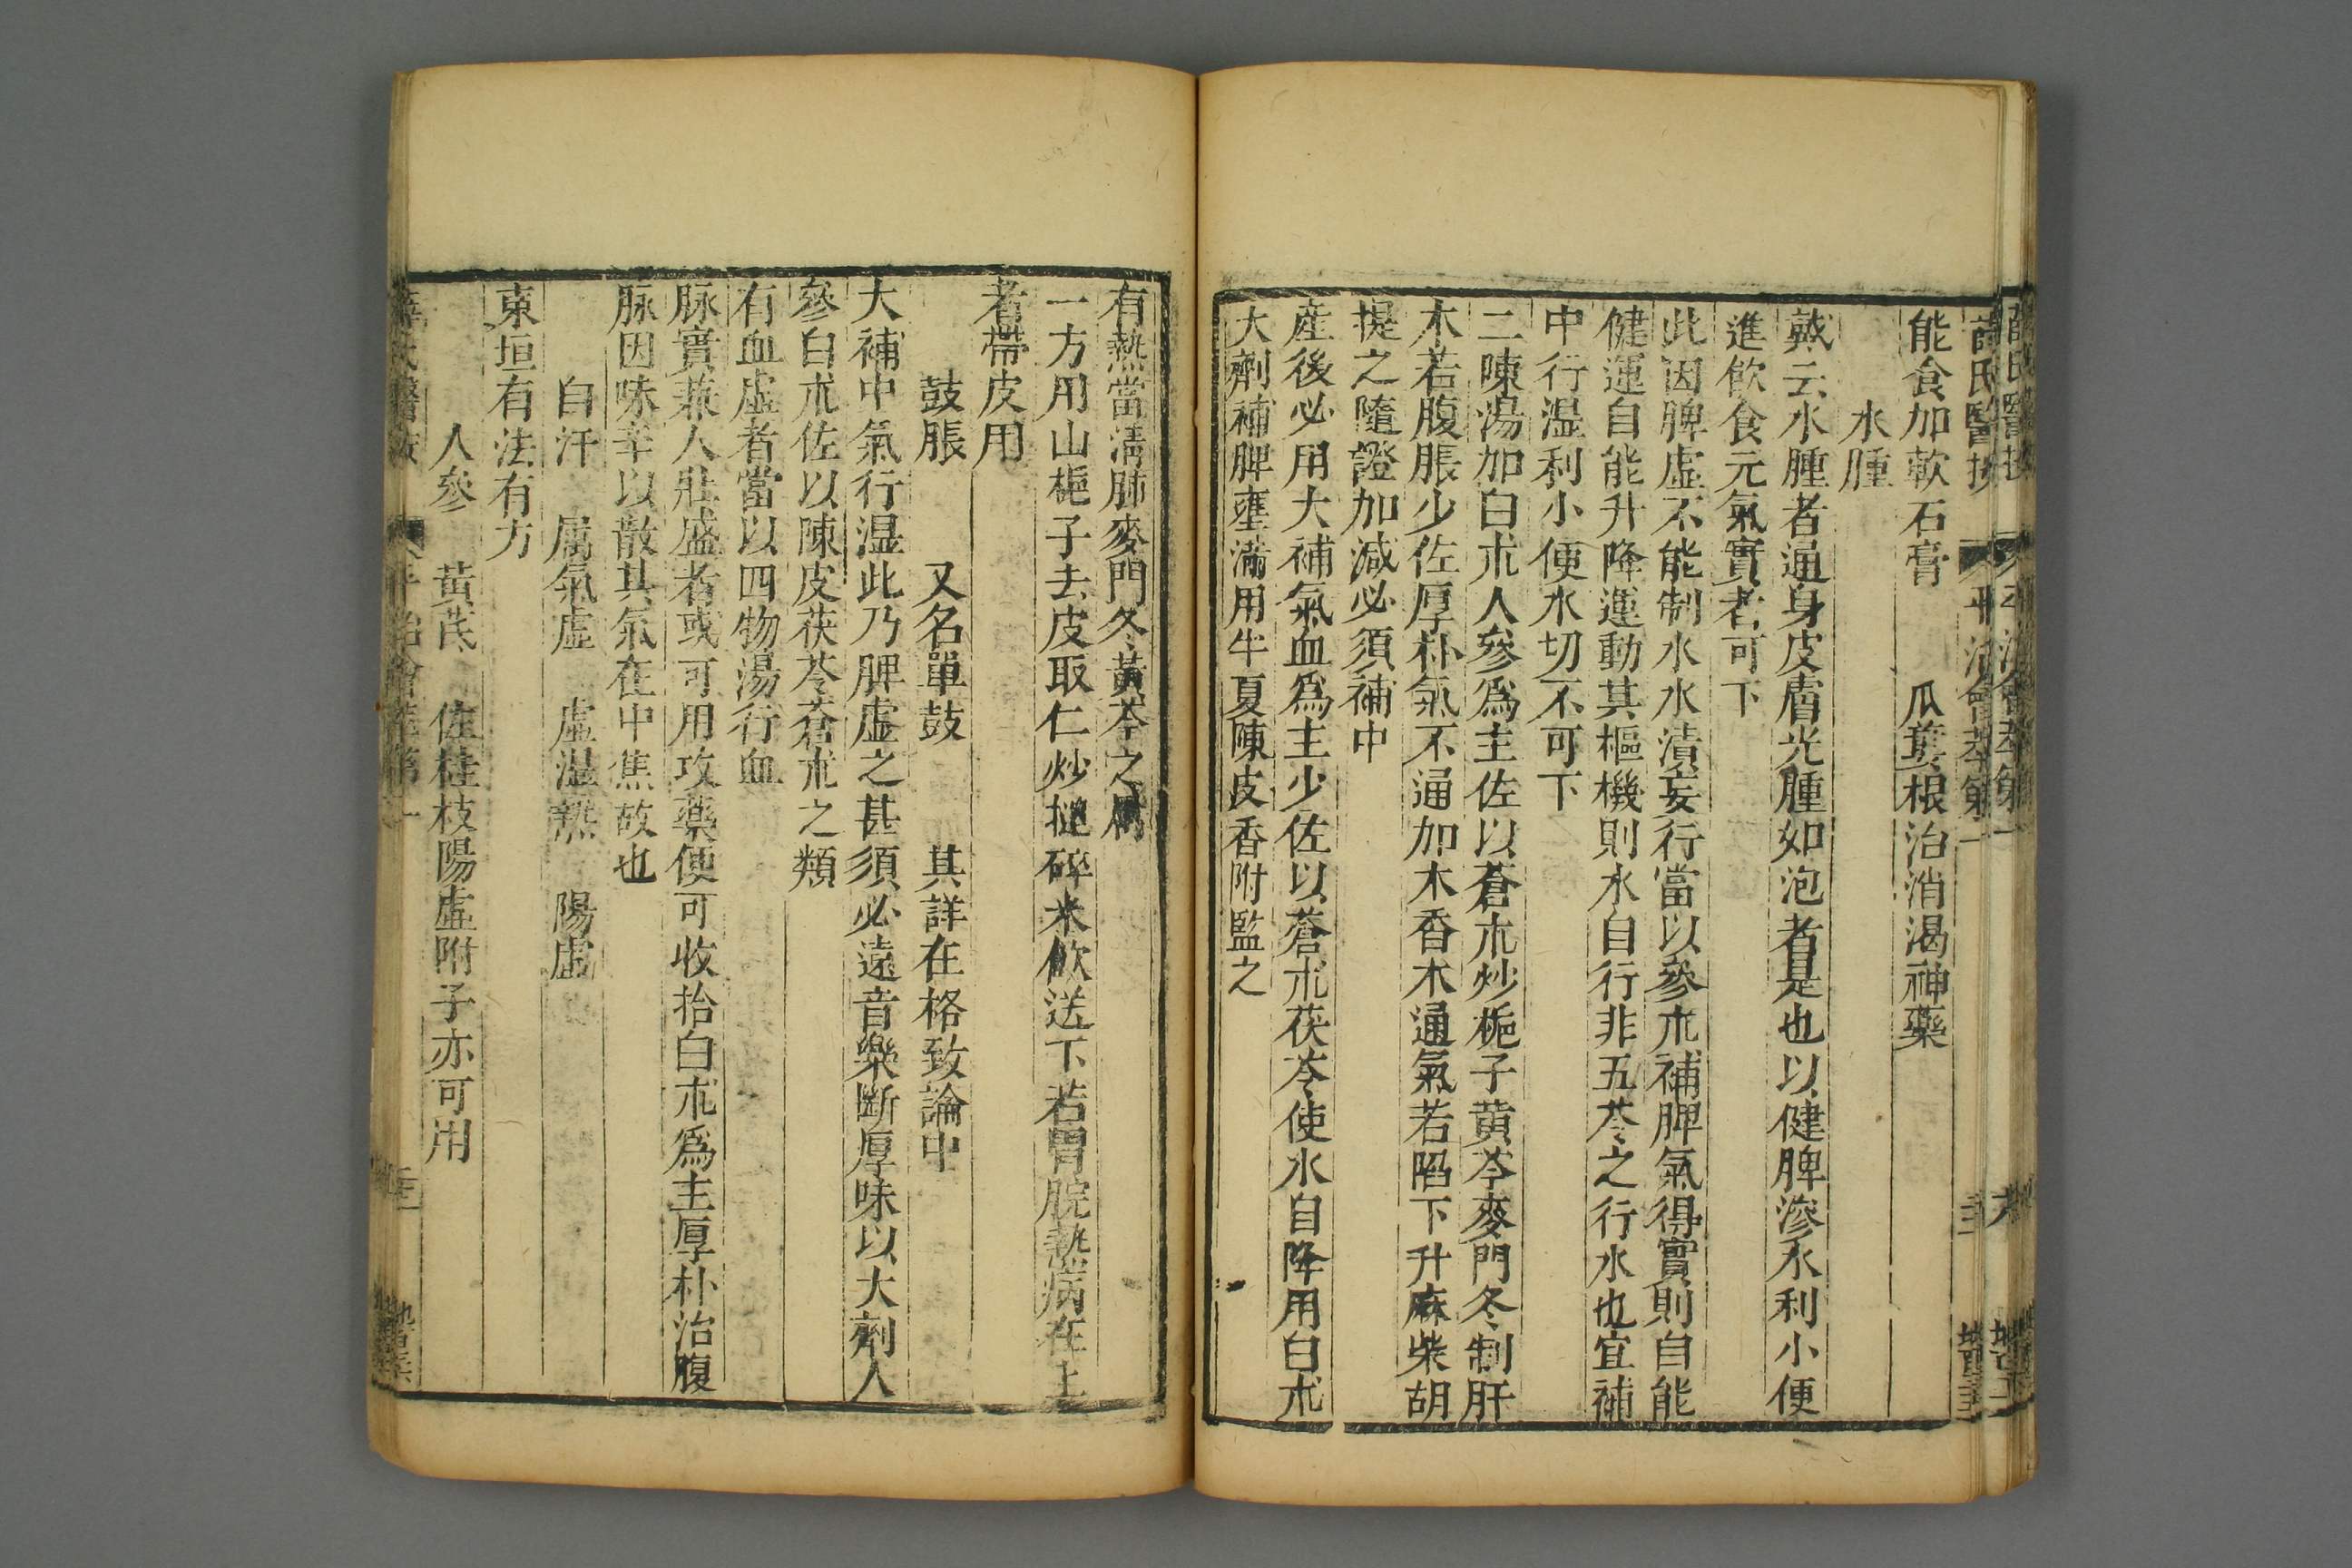 能食加軟石膏　瓜蔞根治消渴神藥
水腫
戴云水腫者通身皮膚光腫如泡者是也以健脾滲水利小便
進飲食元氣實者可下
此因脾虛不能制水水漬妄行當以參朮補脾氣得實則自能
健運自能升降運動其樞機則水自行非五苓之行水也宜補
中行湿利小便水切不可下
二陳湯加白朮人參爲主佐以蒼朮炒梔子黃芩麥門冬制肝
木若腹脹少佐厚朴氣不通加木香木通氣若陷下升麻柴胡
提之隨證加減必須補中
産後必用大補氣血爲主少佐以蒼朮茯苓使水自降用白朮
大劑補脾壅滿用半夏陳皮香附監之
有熱當清肺麥門冬黃芩之屬
一方用山梔子去皮取仁炒搥碎米飲送下若胃脘熱病在上
者帶皮用
鼓脹　又名單鼓　其詳在格致論中
大補中氣行湿此乃脾虛之甚須必遠音樂斷厚味以大劑人
參白朮佐以陳皮茯苓蒼朮之類
有血虛者當以四物湯行血
脉實兼人壯盛者或可用攻藥便可收拾白朮爲主厚朴治腹
脹因味辛以散其氣在中焦故也
自汗　属氣虛　虛湿熱　陽虛
東垣有法有方
人參　黃芪　佐桂枝陽虛附子亦可用